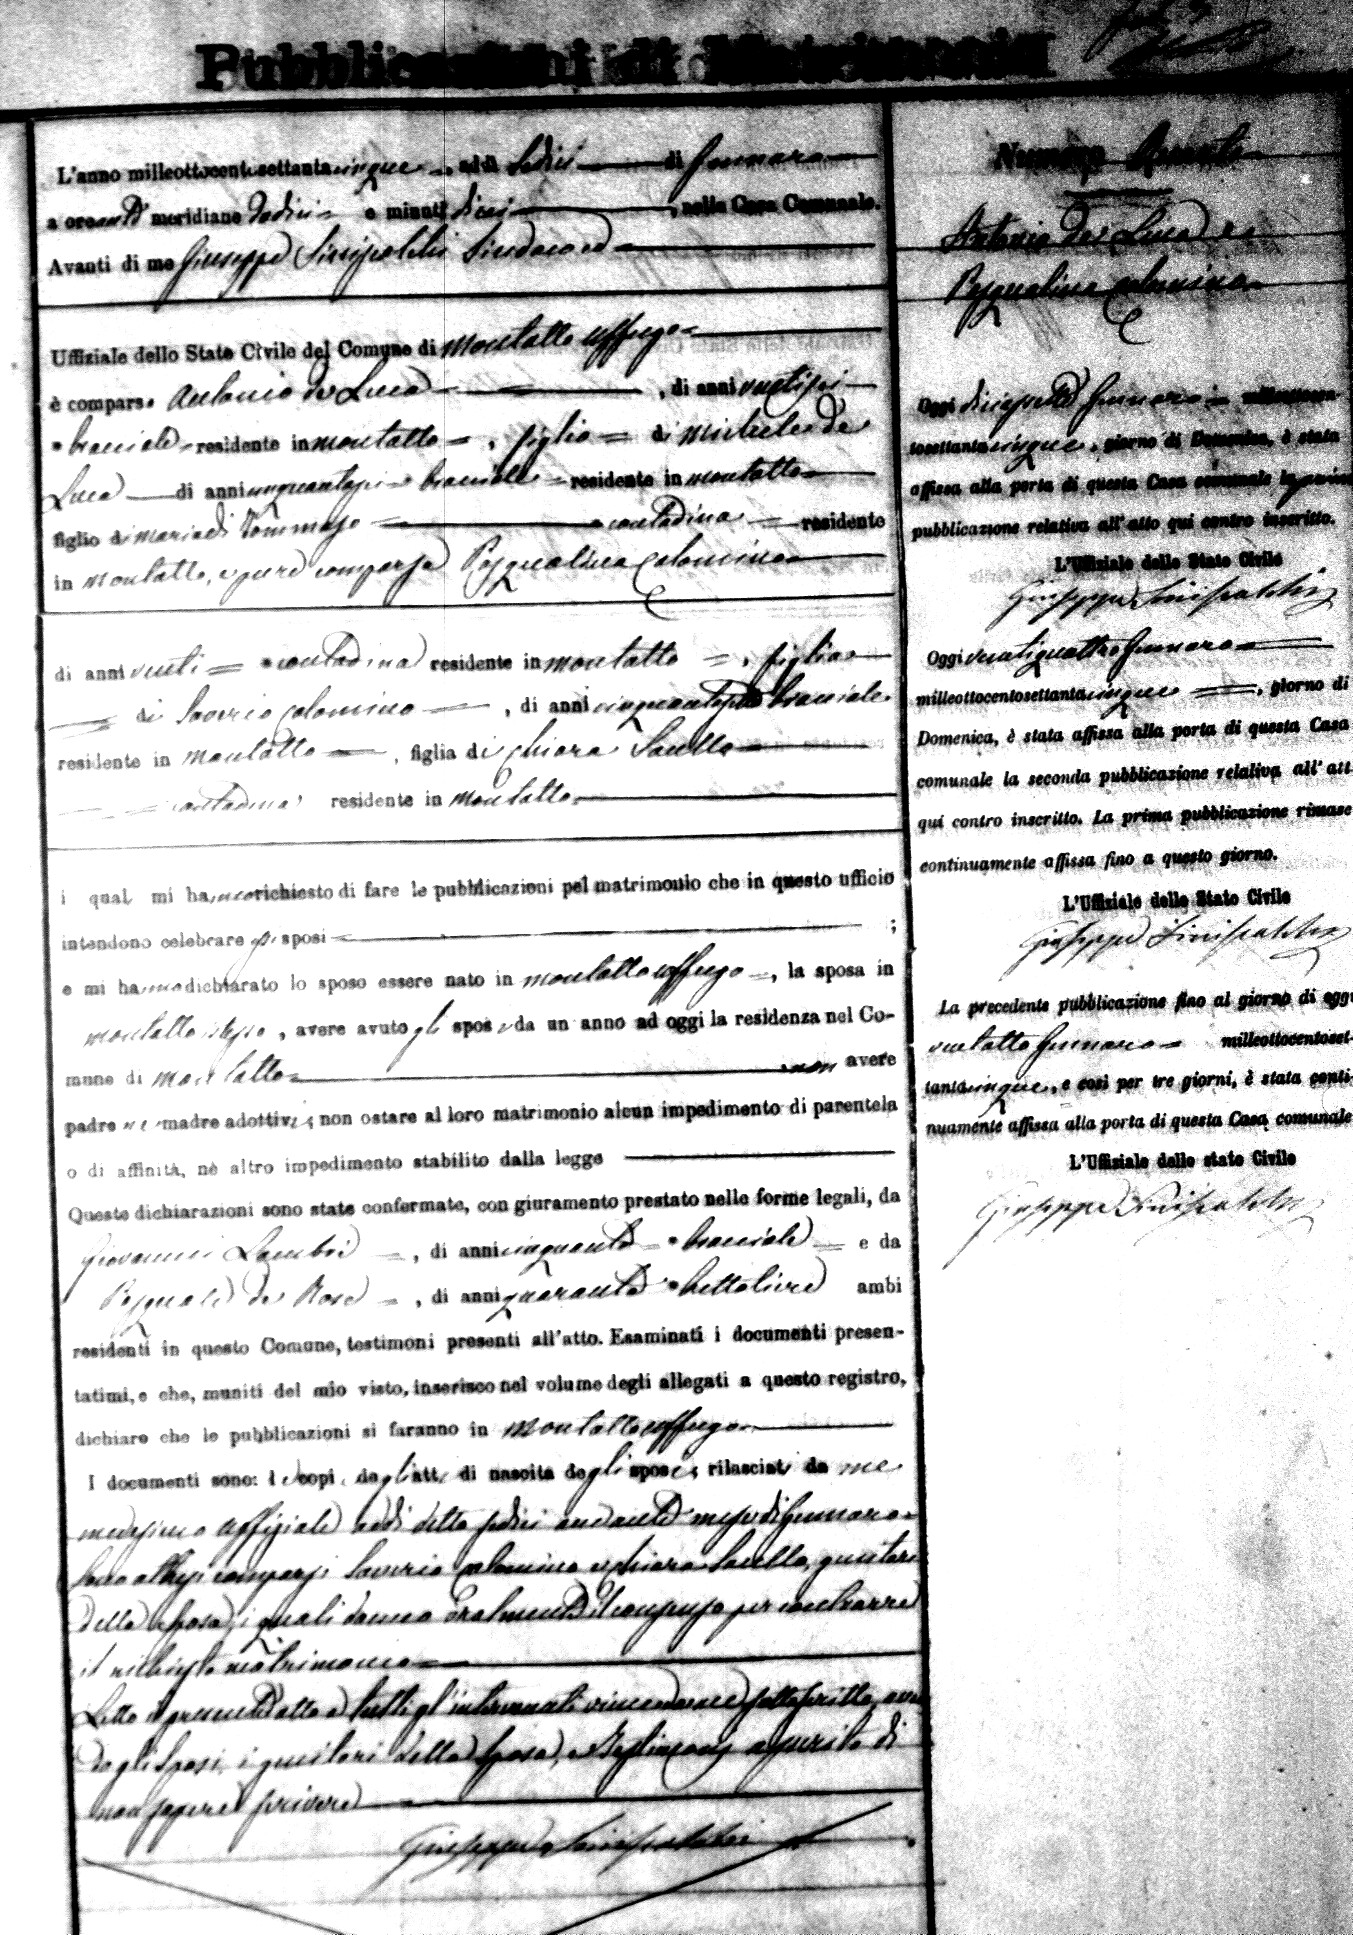 Pubblicazioni di Matrimonio
L'anno milleottocentosettantacinque, addì Sedici di Gennaro
a ore anti meridiane dodici e minuti dieci, nella Casa Comunale.
Avanti di me Giuseppe Sinisalchi Sindaco ed
Uffiziale dello Stato Civile del Comune di Montalto Uffugo
è comparso Antonio de Luca, di anni ventisei
bracciale residente in Montalto, figlio di Michele de
Luca di anni cinquantasei bracciale residente in Montalto
figlio di Maria di Tommaso contadina residente
in Montalto, e pure comparsa Pasqualina Calomino
di anni venti contadina residente in Montalto, figlia
di Saverio Calomino, di anni bracciale
residente in Montalto, figlia di Chiara Sacello
contadina residente in Montalto
i quali mi hanno richiesto di fare le pubblicazioni pel matrimonio che in questo ufficio
intendono celebrare essi sposi ;
e mi hanno dichiarato lo sposo essere nato in Montalto Uffugo, la sposa in
Montalto stesso, avere avuto gli sposi da un anno ad oggi la residenza nel Co-
mune di Montalto non avere
padre nè madre adottivi; non ostare al loro matrimonio alcun impedimento di parentela
o di affinità, nè altro impedimento stabilito dalla legge
Queste dichiarazioni sono state confermate, con giuramento prestato nelle forme legali, da
Giovanni, di anni cinquanta bracciale e da
Pasquale de Rose, di anni quaranta bettoliere ambi
residenti in questo Comune, testimoni presenti all'atto. Esaminati i documenti presen-
tatimi, e che, muniti del mio visto, inserisco nel volume degli allegati a questo registro,
dichiaro che le pubblicazioni si faranno in Montalto Uffugo
I documenti sono: le copie degli atti di nascita degli sposi; rilasciate da me
medesimo Uffiziale addì detto sedici andante mese di Gennaro
Sono altresì comparsi Saverio Calomino e Chiara Sacello, genitori
della sposa, i quali danno oralmente il consenso per contrarre
il richiesto matrimonio
Letto il presente atto a tutti gl'intervenuti viene da me sottoscritto, avendo
gli sposi, i genitori della sposa, e testimoni asserito di
non sapere scrivere
Giuseppe Sinisalchi
Numero
Antonio de Luca e
Pasqualina Calomino
Oggi diciassette Gennaro milleottocen-
tosettantacinque, giorno di Domenica, è stata
affissa alla porta di questa Casa comunale la prima
pubblicazione relativa all'atto qui contro inscritto.
L'Uffiziale dello Stato Civile
Giuseppe Sinisalchi
Oggi ventiquattro Gennaro
milleottocentosettantacinque, giorno di
Domenica, è stata affissa alla porta di questa Casa
comunale la seconda pubblicazione relativa all'att
qui contro inscritto. La prima pubblicazione rimase
continuamente affissa fino a questo giorno.
L'Uffiziale dello Stato Civile
Giuseppe Sinisalchi
La precedente pubblicazione fino al giorno di oggi
ventotto Gennaro milleottocentoset-
tantacinque, e così per tre giorni, è stata conti-
nuamente affissa alla porta di questa Casa comunale
L'Uffiziale dello stato Civile
Giuseppe Sinisalchi